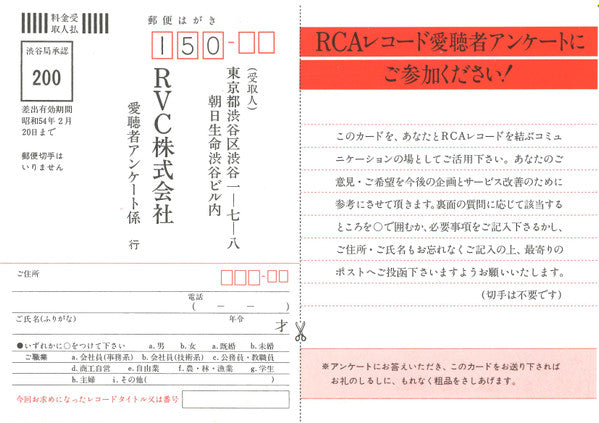 料金受
取人払
渋谷局承認
200
差出有効期間
昭和54年2月
20日まで
郵便切手は
いりません
郵便はがき
150-
(受取人)
東京都渋谷区渋谷一ー七ー八
朝日生命渋谷ビル内
RVC株式会社
愛聴者アンケート係 行
ご住所
電話
( ー ー )
ご氏名(ふりがな)
年令
才
●いずれかに○をつけて下さい a.男 b.女 a.既婚 b.未婚
ご職業 a.会社員(事務系) b.会社員(技術系) c.公務員・教職員
d.商工自営 e.自由業 f.農・林・漁業 g.学生
h.主婦 i.その他(
今回お求めになったレコードタイトル又は番号
RCAレコード愛聴者アンケートに
ご参加ください!
このカードを、あなたとRCAレコードを結ぶコミュ
ニケーションの場としてご活用下さい。あなたのご
意見・ご希望を今後の企画とサービス改善のために
参考にさせて頂きます。裏面の質問に応じて該当する
ところを○で囲むか、必要事項をご記入下さるかし、
ご住所・ご氏名もお忘れなくご記入の上、最寄りの
ポストへご投函下さいますようお願いいたします。
(切手は不要です)
※アンケートにお答えいただき、このカードをお送り下されば
お礼のしるしに、もれなく粗品をさしあげます。